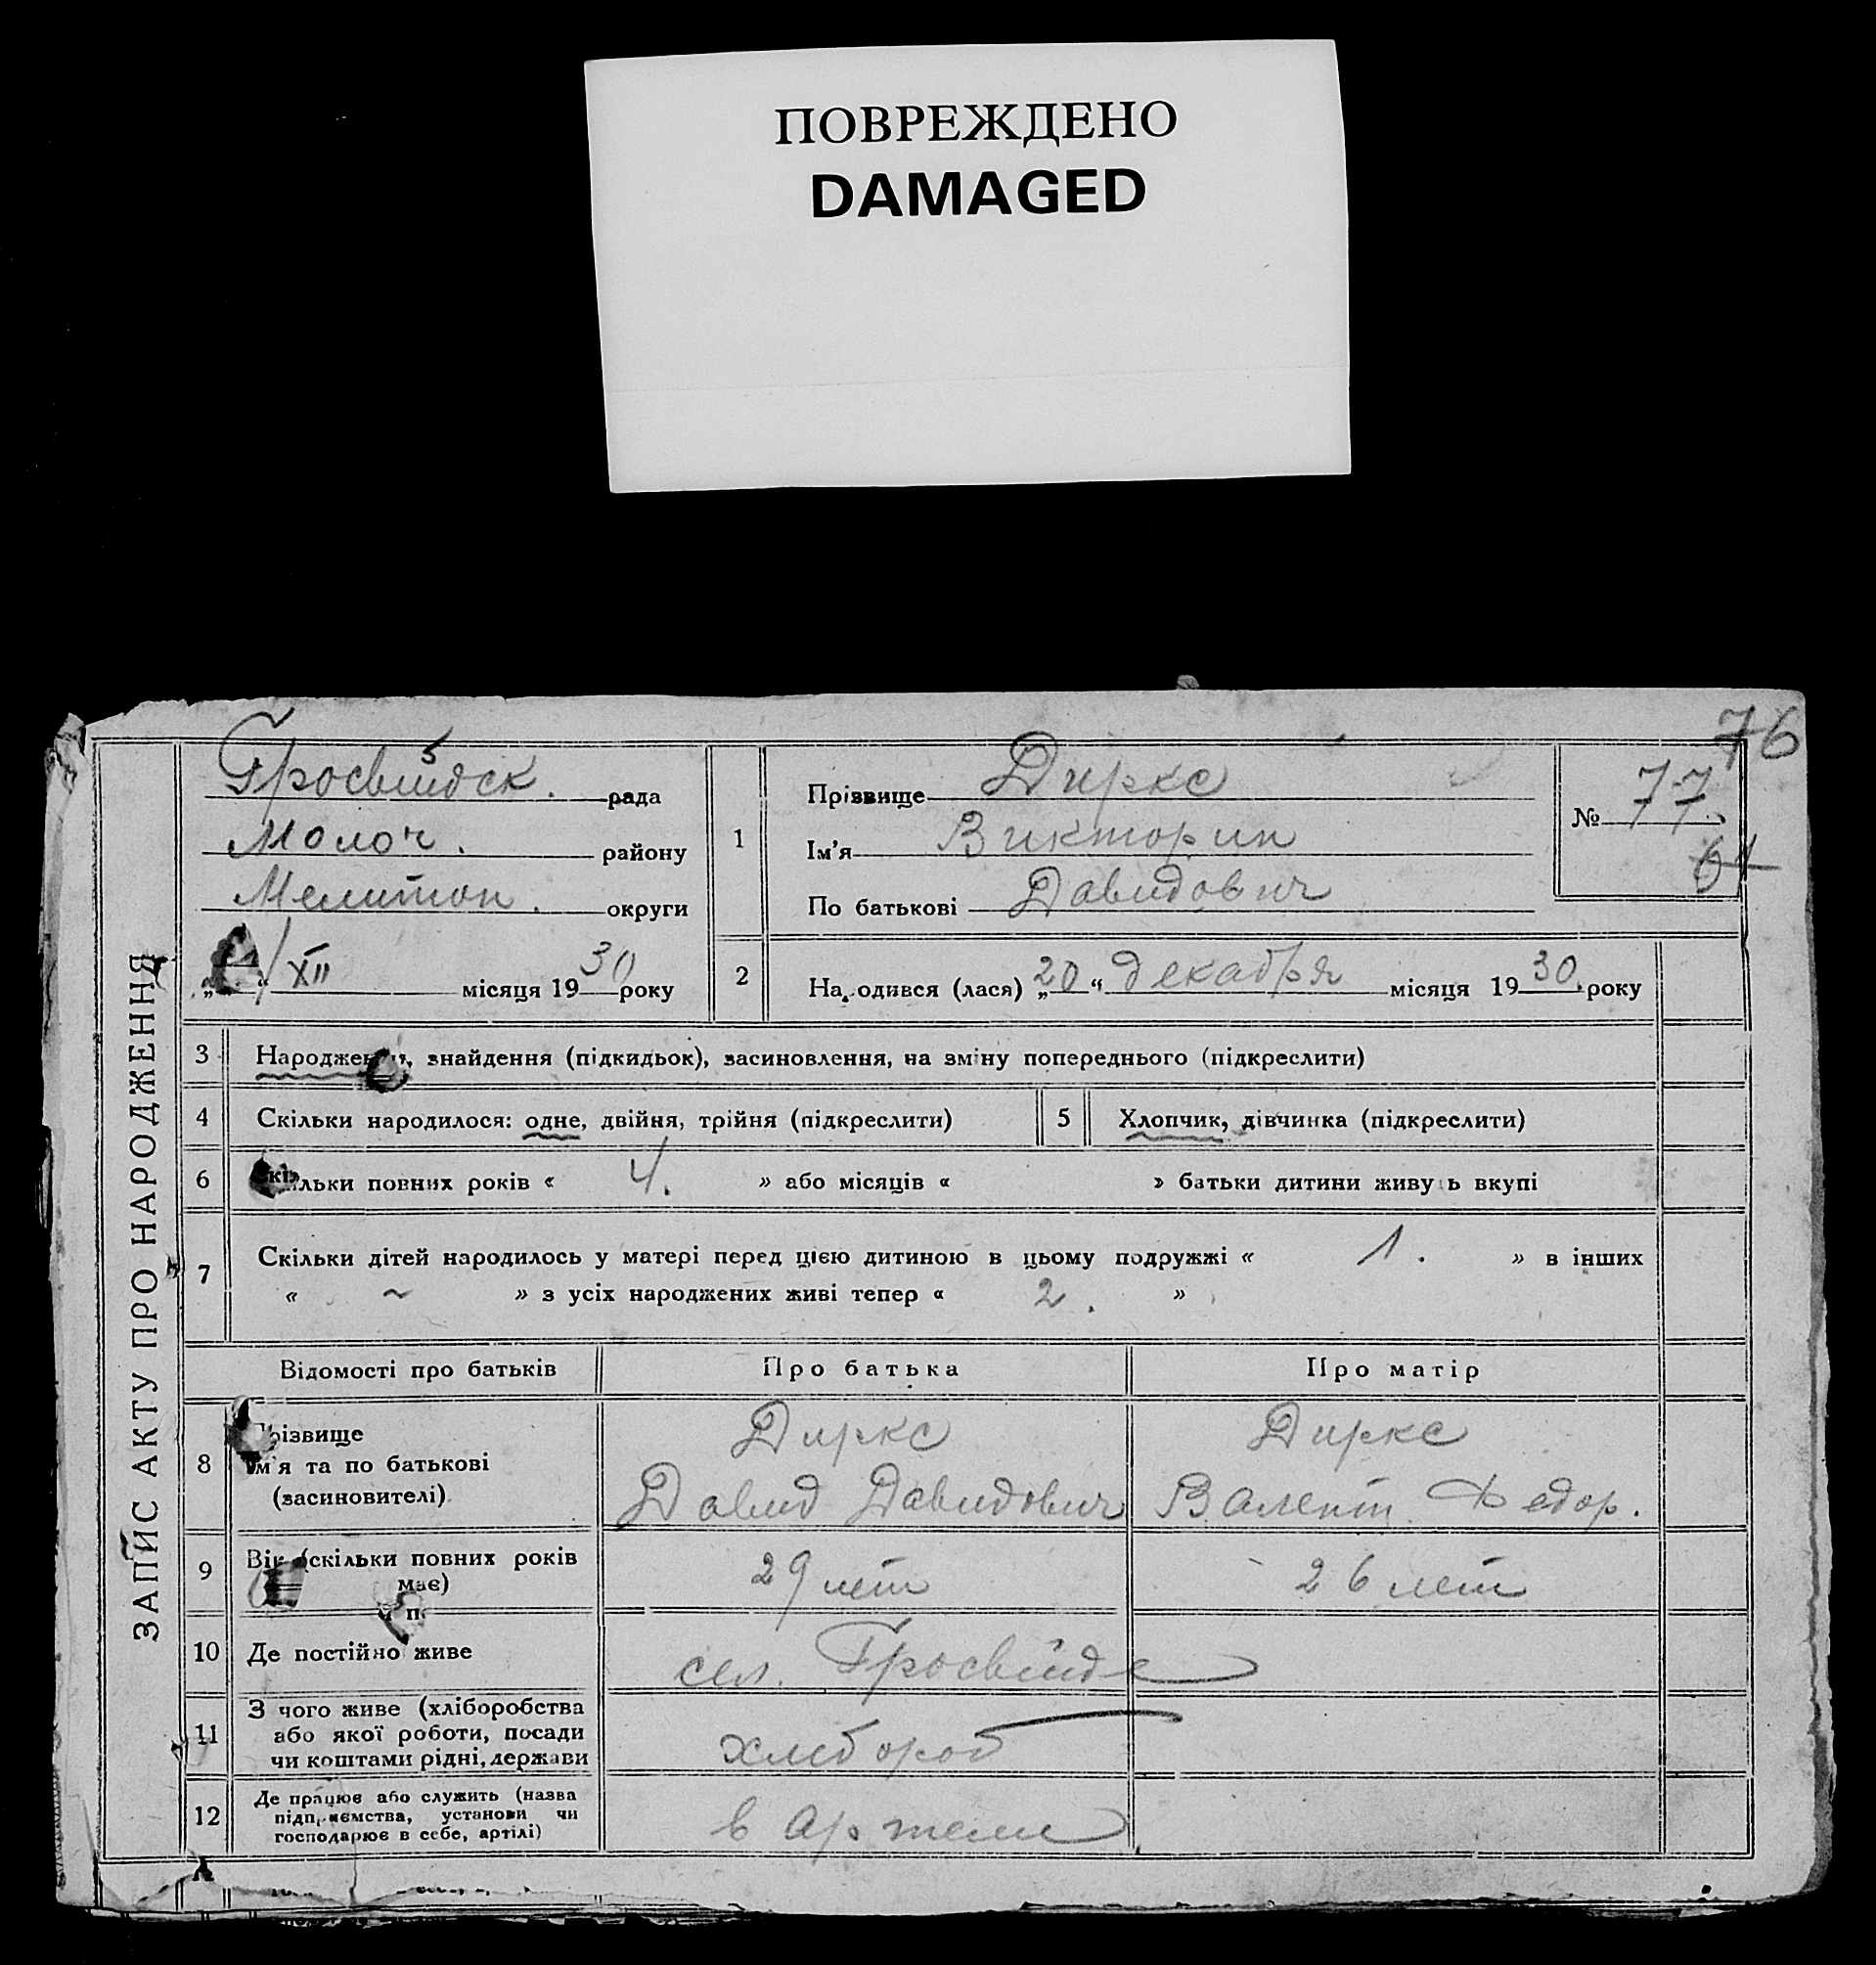 ПОВРЕЖДЕНО
DAMAGED
76
ЗАПИС АКТУ ПРО НАРОДЖЕННЯ
Гросвейдск. рада
Молоч. району
Мелитоп. округи
XII місяця 1930 року
1
Прізвище Диркс
Ім'я Викторин
По батькові Давидович
№ 77.
64
2
На одився (лася) „20“ декабря місяця 1930. року
3 Народження, знайдення (підкидьок), засиновлення, на зміну попереднього (підкреслити)
4 Скільки народилося: одне, двійня, трійня (підкреслити)
5 Хлопчик, дівчинка (підкреслити)
6 Скільки повних років « 4. » або місяців « » батьки дитини живу ь вкупі
7 Скільки дітей народилось у матері перед цією дитиною в цьому подружжі « 1. » в інших
« ~ » з усіх народжених живі тепер « 2. »
Відомості про батьків Про батька Про матір
8 Прізвище
ім'я та по батькові
(засиновителі)
Диркс
Давид Давидович
Диркс
Валент. Федор.
9 Вік (скільки повних років
має)
29 лет
26 лет
10 Де постійно живе
сел. Гросвейде
11 З чого живе (хліборобства
або якої роботи, посади
чи коштами рідні, держави
хлебороб
12 Де працює або служить (назва
підприємства, установи чи
господарює в себе, артілі)
в артели